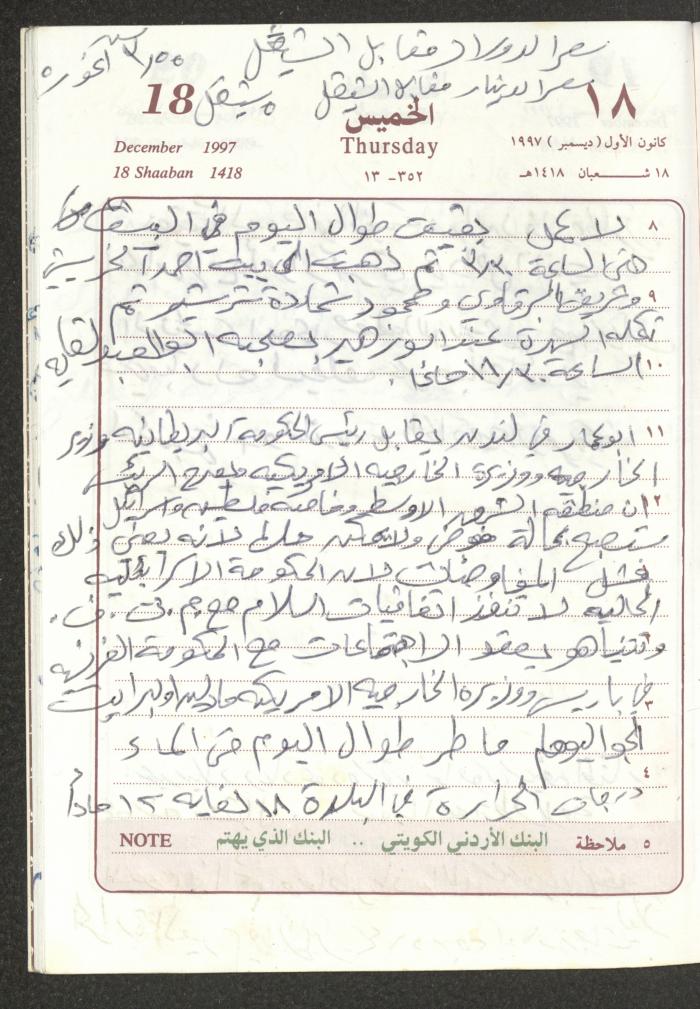 سعر الدولار مقابل الشيقل ٣,٥٥
سعر الدينار مقابل الشيقل ٥ شيقل
18 الخميس ١٨
December 1997 Thursday كانون الأول ( ديسمبر ) ١٩٩٧
18 Shaaban 1418 ٣٥٢- ١٣ ١٨ شـعبان ١٤١٨هـ
٨ لا عمل بقيت طوال اليوم في البيت
حتى الساعة ثم ذهبت الى بيت احمد
٩ وشريف البرقاوي ومحمود شحادة ثم
تكملة السهرة عند ابو زهير بصحبة ولغاية
١٠ الساعة
١١ ابو عمار في لندن يقابل رئيس الحكومة البريطانية ووزير
الخارجية ووزيرة الخارجية الامريكية الرئيس
١٢ ان منطقة الشرق الاوسط وخاصة فلسطين واسرائيل
ستصبح بحالة فوضى لانه ذلك
١ فشل المفاوضات لان الحكومة الاسرائيلية
الحالية لا تنفذ اتفاقيات السلام مع م.ت.ف.
٢ ونتنياهو يعقد الاجتماعات مع الحكومة الفرنسية
٣ في باريس ووزيرة الخارجية الامريكية مادلين اولبرايت
الجو اليوم ماطر طوال اليوم حتى المساء
٤
درجات الحرارة في البلدة ١٨ لغاية ١٢
٥ ملاحظة البنك الأردني الكويتي .. البنك الذي يهتم NOTE